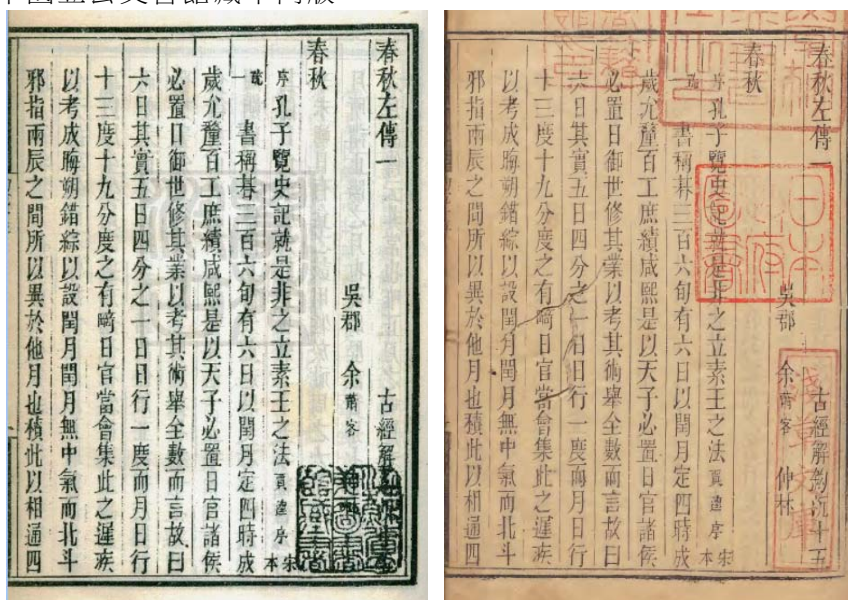 春秋左傳一 古經解
吳郡 余蕭客
春秋
序孔子覽史記就是非之立素王之法賈逵序宋本
疏一 書稱朞三百六旬有六日以閏月定四時成
歲允釐百工庶績咸熙是以天子必置日官諸侯
必置日御世修其業以考其術舉全數而言故曰
六日其實五日四分之一日日行一度而月日行
十三度十九分度之有畸日官當會集此之遲疾
以考成晦朔錯綜以設閏月閏月無中氣而北斗
邪指兩辰之間所以異於他月也積此以相通四
春秋左傳一 古經解鉤沉十五
吳郡 余蕭客 仲林
春秋
序孔子覽史記就是非之立素王之法賈逵序宋本
疏一 書稱朞三百六旬有六日以閏月定四時成
歲允釐百工庶績咸熙是以天子必置日官諸侯
必置日御世修其業以考其術舉全數而言故曰
六日其實五日四分之一日日行一度而月日行
十三度十九分度之有畸日官當會集此之遲疾
以考成晦朔錯綜以設閏月閏月無中氣而北斗
邪指兩辰之間所以異於他月也積此以相通四
日本政府圖書
淺草文庫